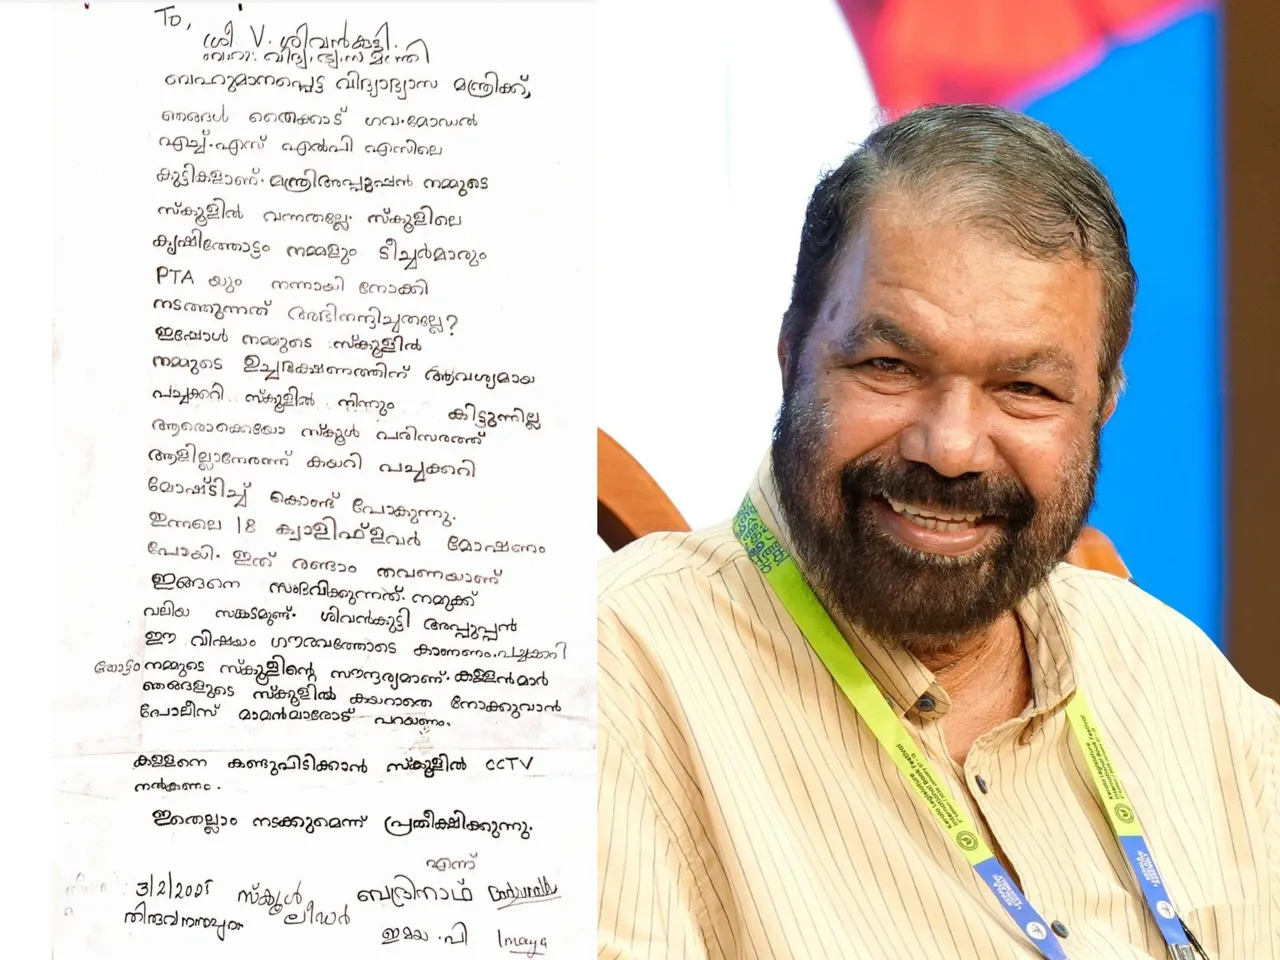 To,
ശ്രീ V. ശിവൻകുട്ടി.
ബഹു: വിദ്യാഭ്യാസ മന്ത്രി
ബഹുമാനപ്പെട്ട വിദ്യാഭ്യാസ മന്ത്രിക്ക്,
ഞങ്ങൾ തൈക്കാട് ഗവ.മോഡൽ
എച്ച്.എസ് എൽപി എസിലെ
കുട്ടികളാണ്. മന്ത്രിഅപ്പൂപ്പൻ നമ്മുടെ
സ്കൂളിൽ വന്നതല്ലേ. സ്കൂളിലെ
കൃഷിത്തോട്ടം നമ്മളും ടീച്ചർമാരും
PTA യും നന്നായി നോക്കി
നടത്തുന്നത് അഭിനന്ദിച്ചതല്ലേ?
ഇപ്പോൾ നമ്മുടെ സ്കൂളിൽ
നമ്മുടെ ഉച്ചഭക്ഷണത്തിന് ആവശ്യമായ
പച്ചക്കറി സ്കൂളിൽ നിന്നും കിട്ടുന്നില്ല
ആരൊക്കെയോ സ്കൂൾ പരിസരത്ത്
ആളില്ലാനേരത്ത് കയറി പച്ചക്കറി
മോഷ്ടിച്ച് കൊണ്ട് പോകുന്നു.
ഇന്നലെ 18 ക്വാളിഫ്ളവർ മോഷണം
പോയി. ഇത് രണ്ടാം തവണയാണ്
ഇങ്ങനെ സംഭവിക്കുന്നത്. നമുക്ക്
വലിയ സങ്കടമുണ്ട്. ശിവൻകുട്ടി അപ്പൂപ്പൻ
ഈ വിഷയം ഗൗരവത്തോടെ കാണണം.പച്ചക്കറി
തോട്ടം നമ്മുടെ സ്കൂളിന്റെ സൗന്ദര്യമാണ്. കള്ളൻമാർ
ഞങ്ങളുടെ സ്കൂളിൽ കയറാതെ നോക്കുവാൻ
പോലീസ് മാമൻമാരോട് പറയണം.
കള്ളനെ കണ്ടുപിടിക്കാൻ സ്കൂളിൽ CCTV
നൽകണം.
ഇതെല്ലാം നടക്കുമെന്ന് പ്രതീക്ഷിക്കുന്നു.
എന്ന്
3/2/2025 സ്കൂൾ ബദ്രിനാഥ്
തിരുവനന്തപുരം ലീഡർ
ഇമയ .പി Inaya
Kerala Legislature
International Book Festival